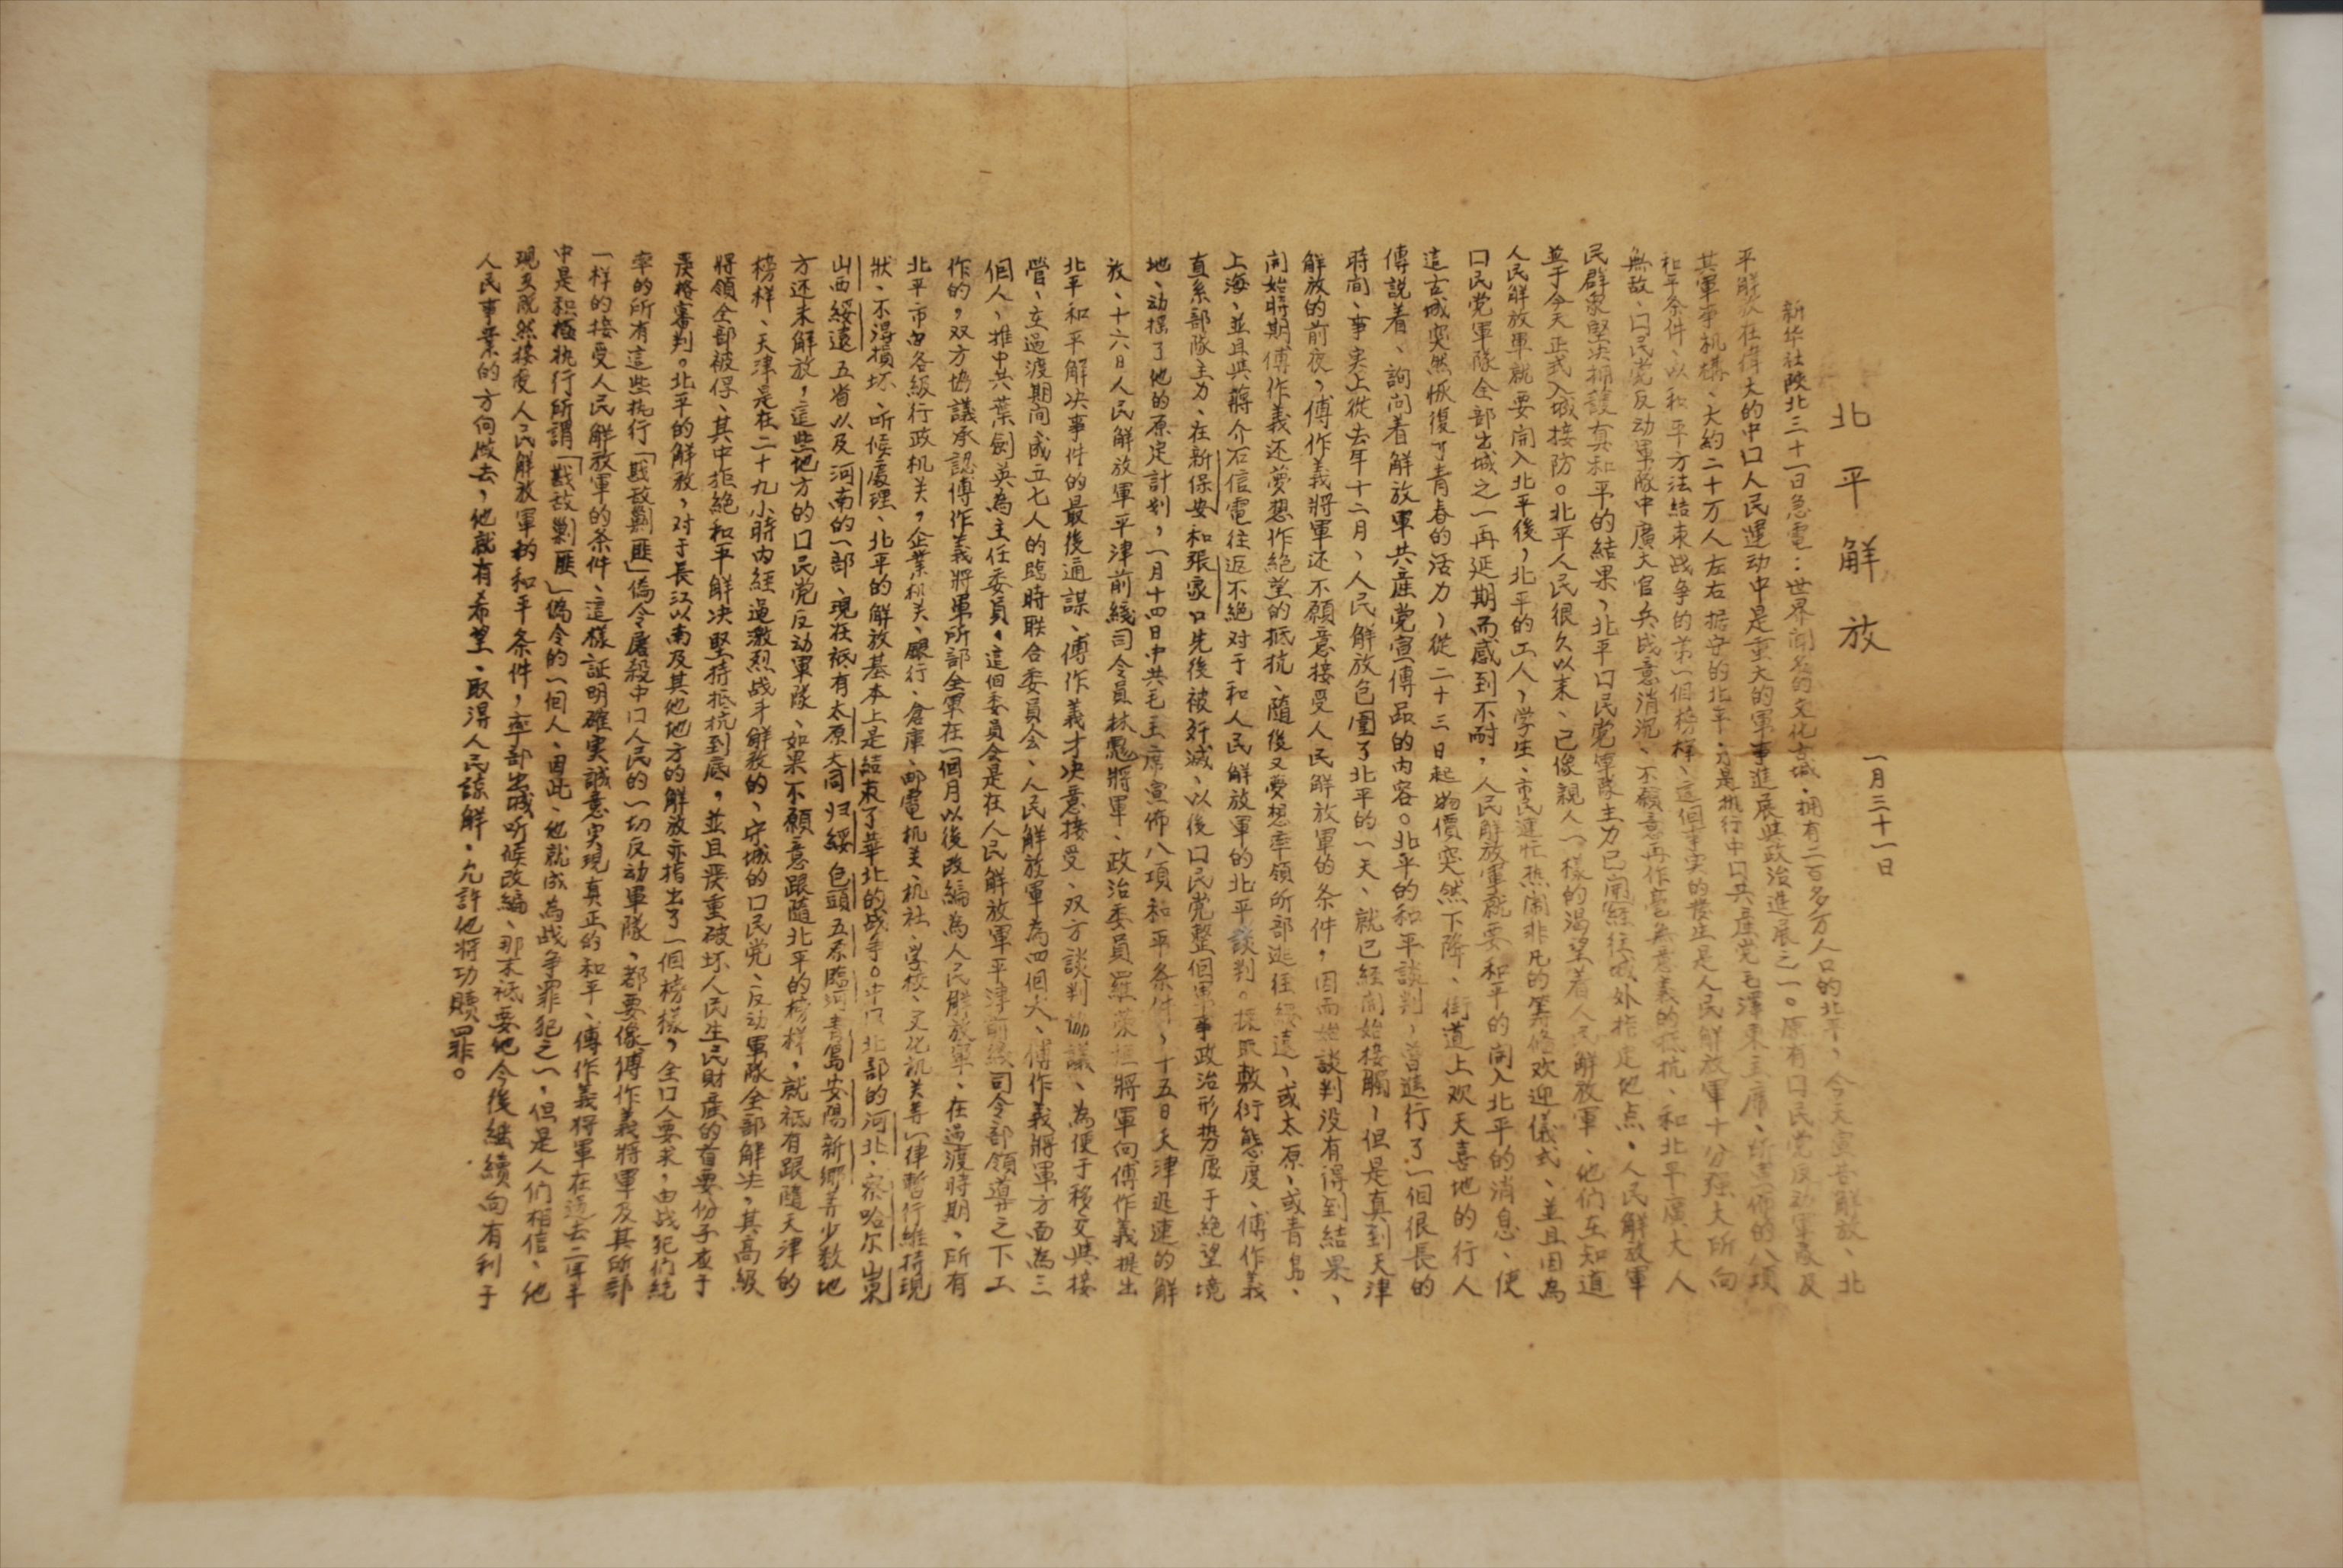 北平解放
一月三十一日
新华社陕北三十一日急電：世界闻名的文化古城、拥有二百多万人口的北平，今天宣告解放、北
平解放在偉大的中口人民運动中是重大的軍事進展与政治進展之一。原有口民党反动軍隊及
其軍事机構、大約二十万人左右据守的北平、乃是執行中口共產党毛澤東主席、所宣佈的八項
和平条件、以和平方法結束战争的第一個榜样、這個事实的發生是人民解放軍十分强大所向
無敌、口民党反动軍隊中廣大官兵战意消沉、不願意再作毫無意義的抵抗、和北平廣大人
民群衆堅决拥護真和平的結果、北平口民党軍隊主力已開往城外指定地点。人民解放軍
並于今天正式入城接防。北平人民很久以来、已像親人一樣的渴望着人民解放軍、他们在知道
人民解放軍就要開入北平後，北平的工人、学生、市民連忙热闹非凡的筹備欢迎儀式、並且因為
口民党軍隊全部出城之一再延期而感到不耐，人民解放軍就要和平的開入北平的消息、使
這古城突然恢復了青春的活力、從二十三日起物價突然下降、街道上欢天喜地的行人
傳説着、詢问着解放軍共産党宣傳品的内容。北平的和平談判、曾進行了一個很長的
時间、事实上從去年十二月、人民解放包圍了北平的一天、就已経開始接觸、但是真到天津
解放的前夜，傅作義將軍还不願意接受人民解放軍的条件，因而始談判没有得到结果、
開始時期傅作義还夢想作絶望的抵抗、隨後又夢想率領所部逃往綏遠、或太原、或青島、
上海、並且与蔣介石信電往返不絶对于和人民解放軍的北平談判。採取敷衍態度、傅作義
直系部隊主力、在新保安和張家口先後被歼滅、以後口民党整個軍事政治形势處于绝望境
地、动摇了他的原定計划，一月十四日中共毛主席宣佈八項和平条件、十五日天津迅速的解
放、十六日人民解放軍平津前綫司令員林彪將軍、政治委員羅荣桓將軍向傅作義提出
北平和平解决事件的最後通諜、傅作義才决意接受、双方談判協議、為便于移交與接
管、在過渡期间成立七人的臨時联合委員会、人民解放軍為四個人、傅作義將軍方面為三
個人、推中共葉劍英為主任委員，這個委員会是在人民解放軍平津前綫司令部領導之下工
作的，双方協議承認傅作義將軍所部全軍在一個月以後改編為人民解放軍、在過渡時期、所有
北平市内各級行政机关，企業机关、銀行、倉庫、邮電机关、机社、学校、文化机关等一律暫行維持現
狀、不得損坏、听候處理、北平的解放基本上是結束了華北的战争。中口北部的河北、察哈尔山東
山西綏遠五省以及河南的一部、現在祗有太原大同归綏包頭五原臨河青島安陽新鄉等少数地
方还未解放，這些地方的口民党反动軍隊、如果不願意跟隨北平的榜样，就祗有跟隨天津的
榜样、天津是在二十九小時内經過激烈战斗解放的、守城的口民党、反动軍隊全部解决，其高級
將領全部被俘、其中拒絶和平解决堅持抵抗到底，並且严重破坏人民生民財産的首要份子在于
严格審判。北平的解放，对于長江以南及其他地方的解放亦指出了一個榜樣，全口人要求，由战犯们統
率的所有這些执行「戡敌剿匪」偽令屠殺中口人民的一切反动軍隊、都要像傅作義將軍及其所部
一样的接受人民解放軍的条件、這樣証明確实誠意实現真正的和平、傅作義將軍在過去二年半
中是积極执行所謂「戡敌剿匪」偽令的一個人、因此、他就成為战争罪犯之一，但是人们相信、他
現在既然接受人民解放軍的和平条件，率部出城听候改編、那末祗要他今後继續向有利于
人民事業的方向做去，他就有希望、取得人民諒解，允許他將功贖罪。